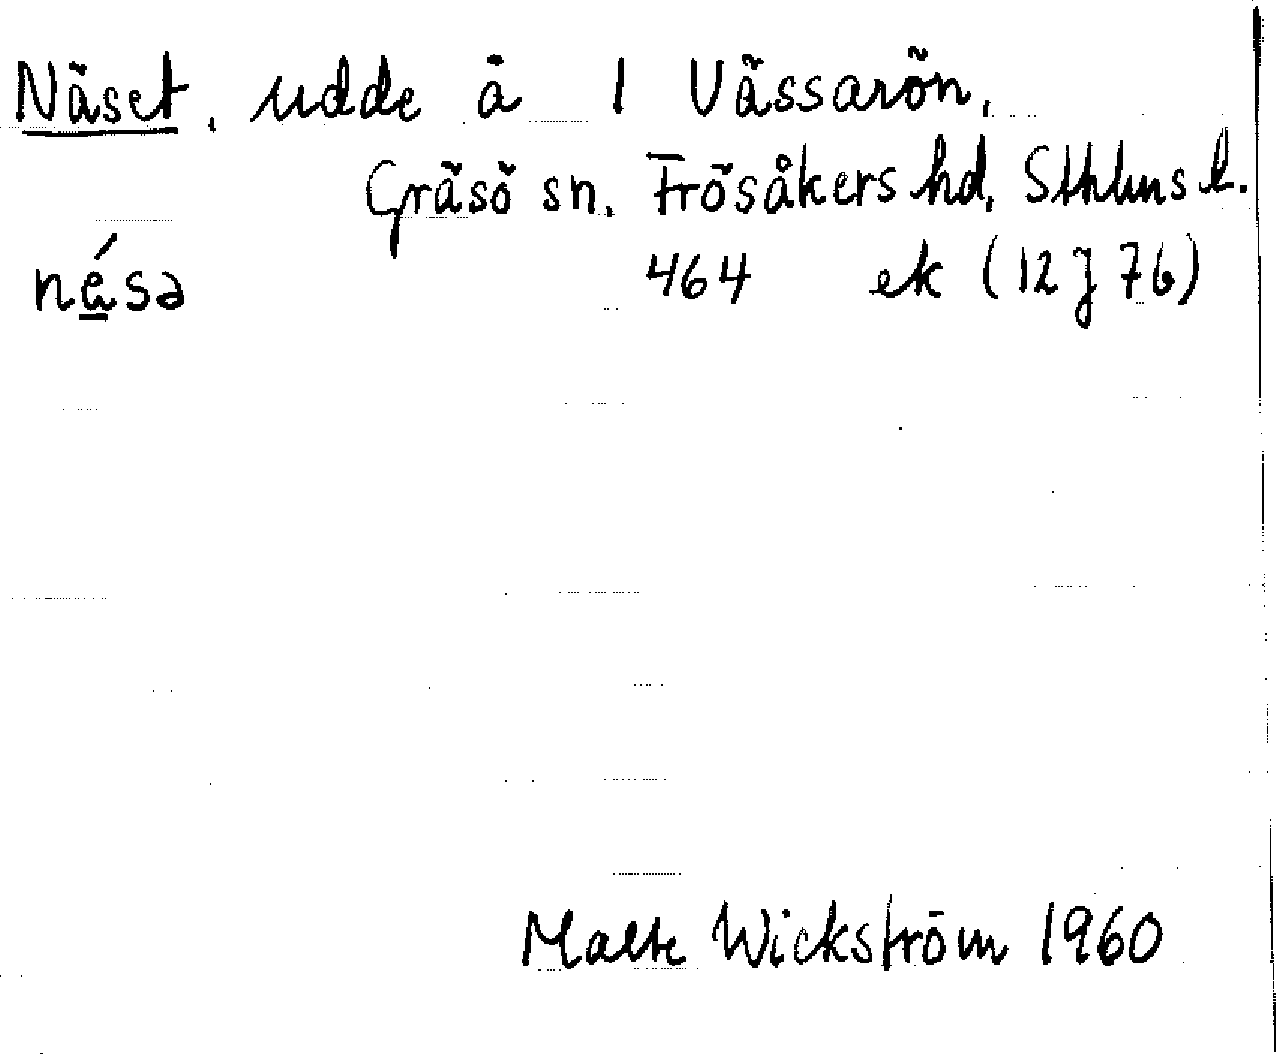 Näset, udde å 1 Vässarön,
Gräsö sn. Frösåkers hd, Sthlms l.
nésə 464 ek (12J 7b)
Malte Wickström 1960